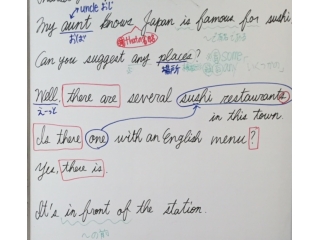 uncle おじ
My aunt knows Japan is famous for sushi
おば
Can you suggest any places?
場所
Well, there are several sushi restaurants
えーっと
in this town.
Is there one with an English menu?
Yes, there is.
It's in front of the station.
〜の前